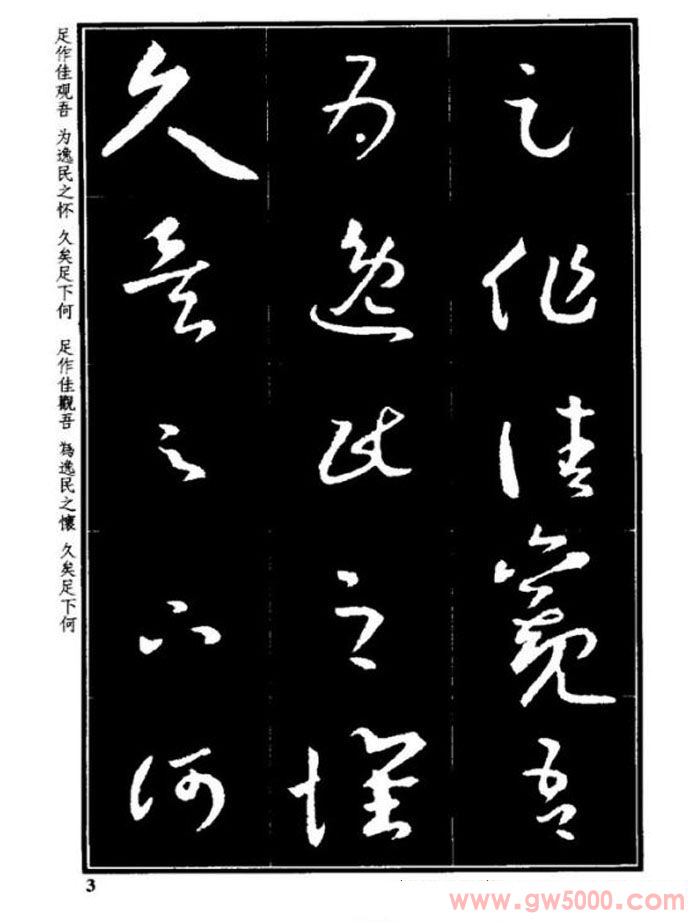 足作佳觀吾
為逸民之懷
久矣足下何
足作佳观吾 为逸民之怀 久矣足下何 足作佳觀吾 為逸民之懷 久矣足下何
3
www.gw5000.com